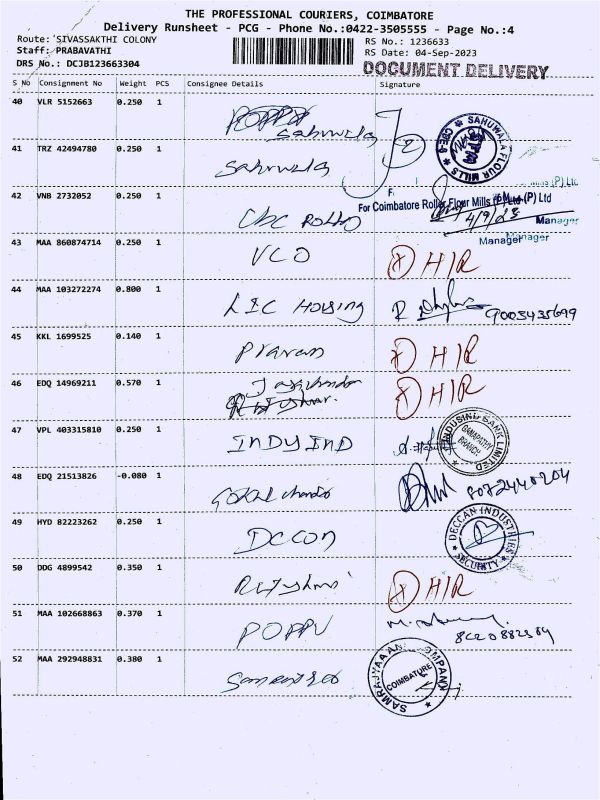 THE PROFESSIONAL COURIERS, COIMBATORE
Delivery Runsheet - PCG - Phone No.:0422-3505555 - Page No.:4
Route: SIVASSAKTHI COLONY
RS No.: 1236633
Staff: PRABAVATHI
RS Date: 04-Sep-2023
DRS No.: DCJB123663304
DOCUMENT DELIVERY
S No Consignment No Weight PCS Consignee Details Signature
40 VLR 5152663 0.250 1
Sahuwala
SAHUWALA FLOUR MILLS
CBE-8
41 TRZ 42494780 0.250 1
Sahuwala
42 VNB 2732052 0.250 1
CBC Rollo
For Coimbatore Roller Flour Mills (P) Ltd
4/9/23
Manager
Manager
43 MAA 860874714 0.250 1
VCO
H/R
44 MAA 103272274 0.800 1
LIC Housing
9003435699
45 KKL 1699525 0.140 1
Pravan
H/R
46 EDQ 14969211 0.570 1
H/R
47 VPL 403315810 0.250 1
INDYIND
INDUSIND BANK LIMITED
GANAPATHY
BRANCH
48 EDQ 21513826 -0.080 1
Gokul chandra
8072440204
49 HYD 82223262 0.250 1
Deccon
DECCAN INDUSTRIES
SECURITY
50 DDG 4899542 0.350 1
H/R
51 MAA 102668863 0.370 1
POPPU
52 MAA 292948831 0.380 1
SAMRAJYAA AND COMPANY
COIMBATORE